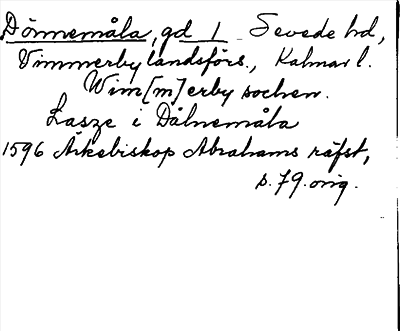 Dönnemåla, gd 1 Sevede hd,
Vimmerby landsförs., Kalmar l.
Wim[m]erby socken.
Lasze i Dålnemåla
1596 Ärkebiskop Abrahams räfst,
s. 79. orig.